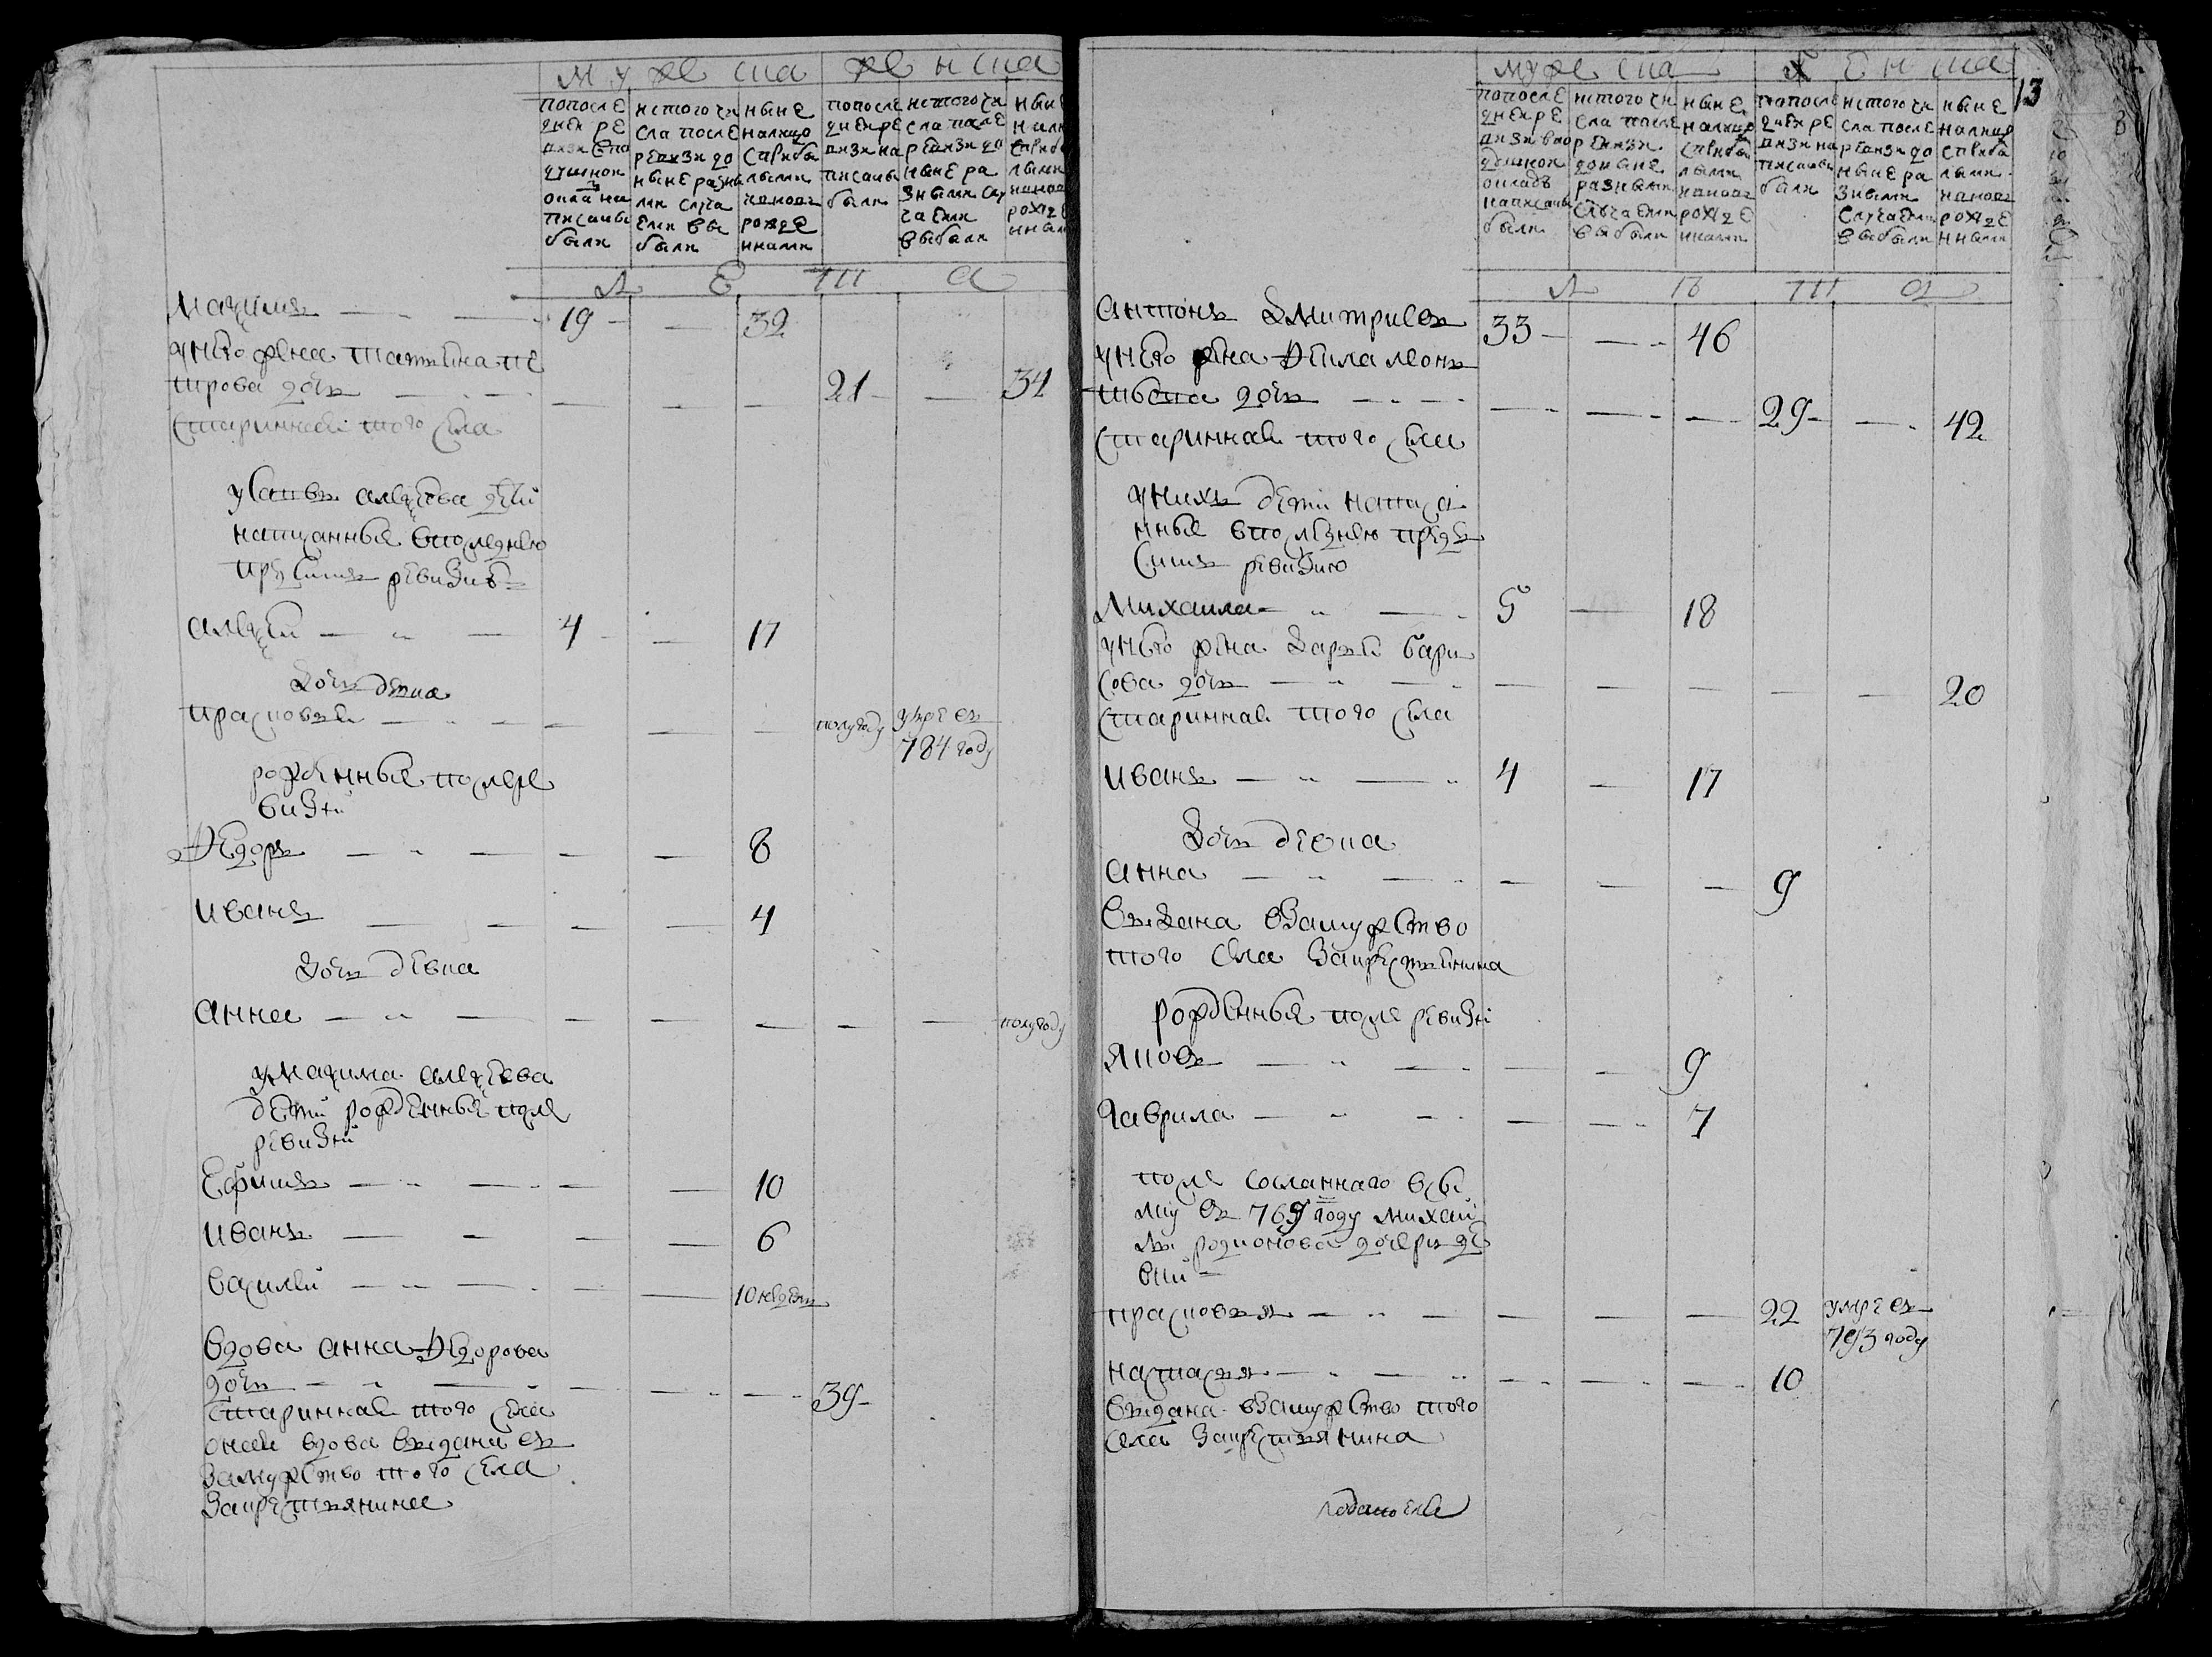 мужеска
женска
попосле
дней ре
визи впо
душной
оклад на
писаны
были
исного чи
сла после
ревизи до
ныне разны
ми случа
еми вы
были
ныне
налицо
сприбы
лыми
иново
рожде
нными
попосле
дней ре
визи на
писаны
были
исного чи
сла после
ревизи до
ныне ра
зными слу
чаеми
выбыли
ныне
лета
Маѯимъ 19 32
унего жена татьяна пе
трова дочь 21 34
старинная того села
у савы алеѯеева детей
написанные впоследнею
пред симъ ревизию
алеѯей 4 17
дочь девка
прасковья полугоду умре въ
784 году
рожденные после ре
визии
Ѳедоръ 8
иванъ 4
дочь девка
анна полугоду
умаѯима алеѯеева
дети рожденные после
ревизии
Ефимъ 10
иванъ 6
василей 10 недель
вдова анна Ѳедорова
дочь 39
старинная того села
оная вдова выдана въ
замужство того села
закрестьянина
мужеска
женска
13
попосле
дней ре
визи впо
душной
окладъ
написаны
были
исного чи
сла после
ревизи
доныне
разными
случаеми
выбыли
ныне
налицо
сприбы
лыми
иново
рожде
нными
попосле
дней ре
визи на
писаны
были
исного чи
сла после
ревизи до
ныне ра
зными
случаеми
выбыли
ныне
налицо
сприбы
лыми
иново
рожде
нными
лета
антонъ дмитриевъ 33 46
унего жена Ѳекла леонь
тьева дочь 29 42
старинная того села
унихъ дети написа
нные впоследнею предъ
симъ ревизию
Михаила 5 18
унего жена дарья бари
сова дочь 20
старинная того села
иванъ 4 17
дочь девка
анна 9
выдана взамужство
того села закрестьянина
рожденные после ревизии
яковъ 9
гаврила 7
после сосланнаго всыб
ику въ 769 году михай
лы родионова дочери де
вки
прасковья 22 умре въ
793 году
настасья 10
выдана взамужство того
села закрестьянина